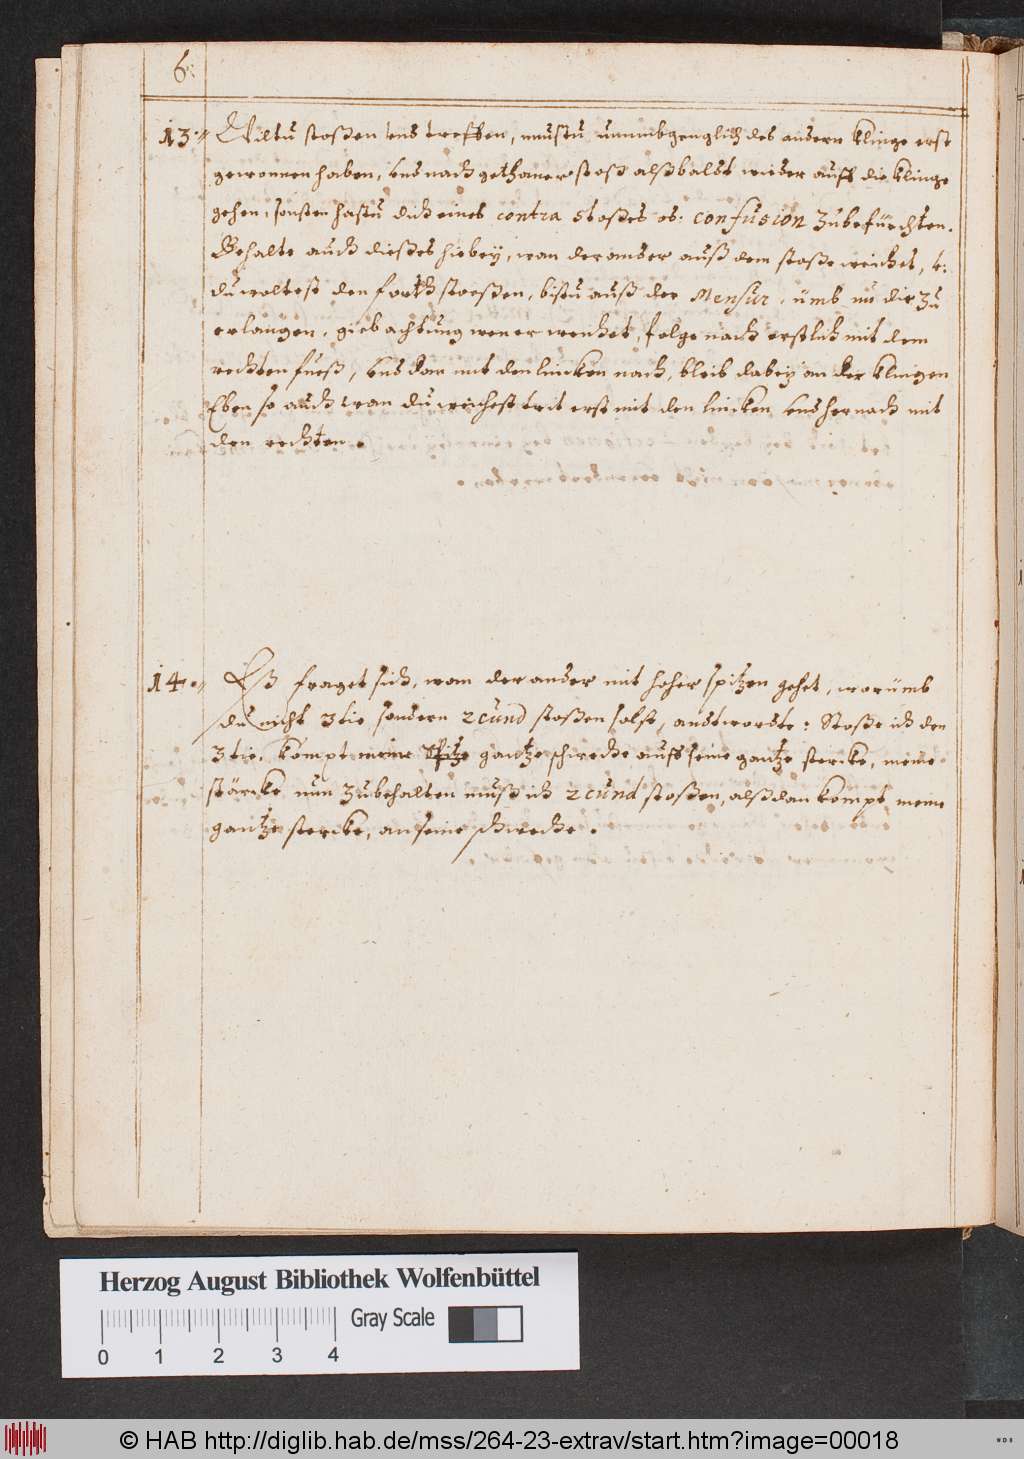 6.
13. Wiltu stoßen vnd treffen, mustu unumbgenglich des andern Klinge erst
gewonnen haben, vnd nach gethanen stoß alßbaldt wieder auff die Klinge
gehen, sonsten hastu dich eines contra stoßes od: confusion zubefürchten.
Behalte auch dießes hiebey, wan der ander auß dem stoße weichet, v:
du woltest den forth stoeßen, bistu auß der Mensur, ümb nu die zu
erlangen, gieb achtung wen er weichet, folge nach erstlich mit dem
rechten fueß, vnd dan mit den lincken nach, bleib dabey an der Klingen
Eben so auch wan du weichest trit erst mit den lincken vnd hernach mit
den rechten.
14. Eß fraget sich, wan der ander mit hoher spitzen gehet, warümb
du nicht 3tie sondern 2cund stoßen solst, andtwordte: Stoße ich den
3tie, kömpt meine gantze schweche auff seine gantze stercke, meine
stärcke nun zubehalten muß ich 2cund stoßen, alßdan kömpt meine
gantze stercke, an seine schweche.
Herzog August Bibliothek Wolfenbüttel
Gray Scale
0 1 2 3 4
© HAB http://diglib.hab.de/mss/264-23-extrav/start.htm?image=00018